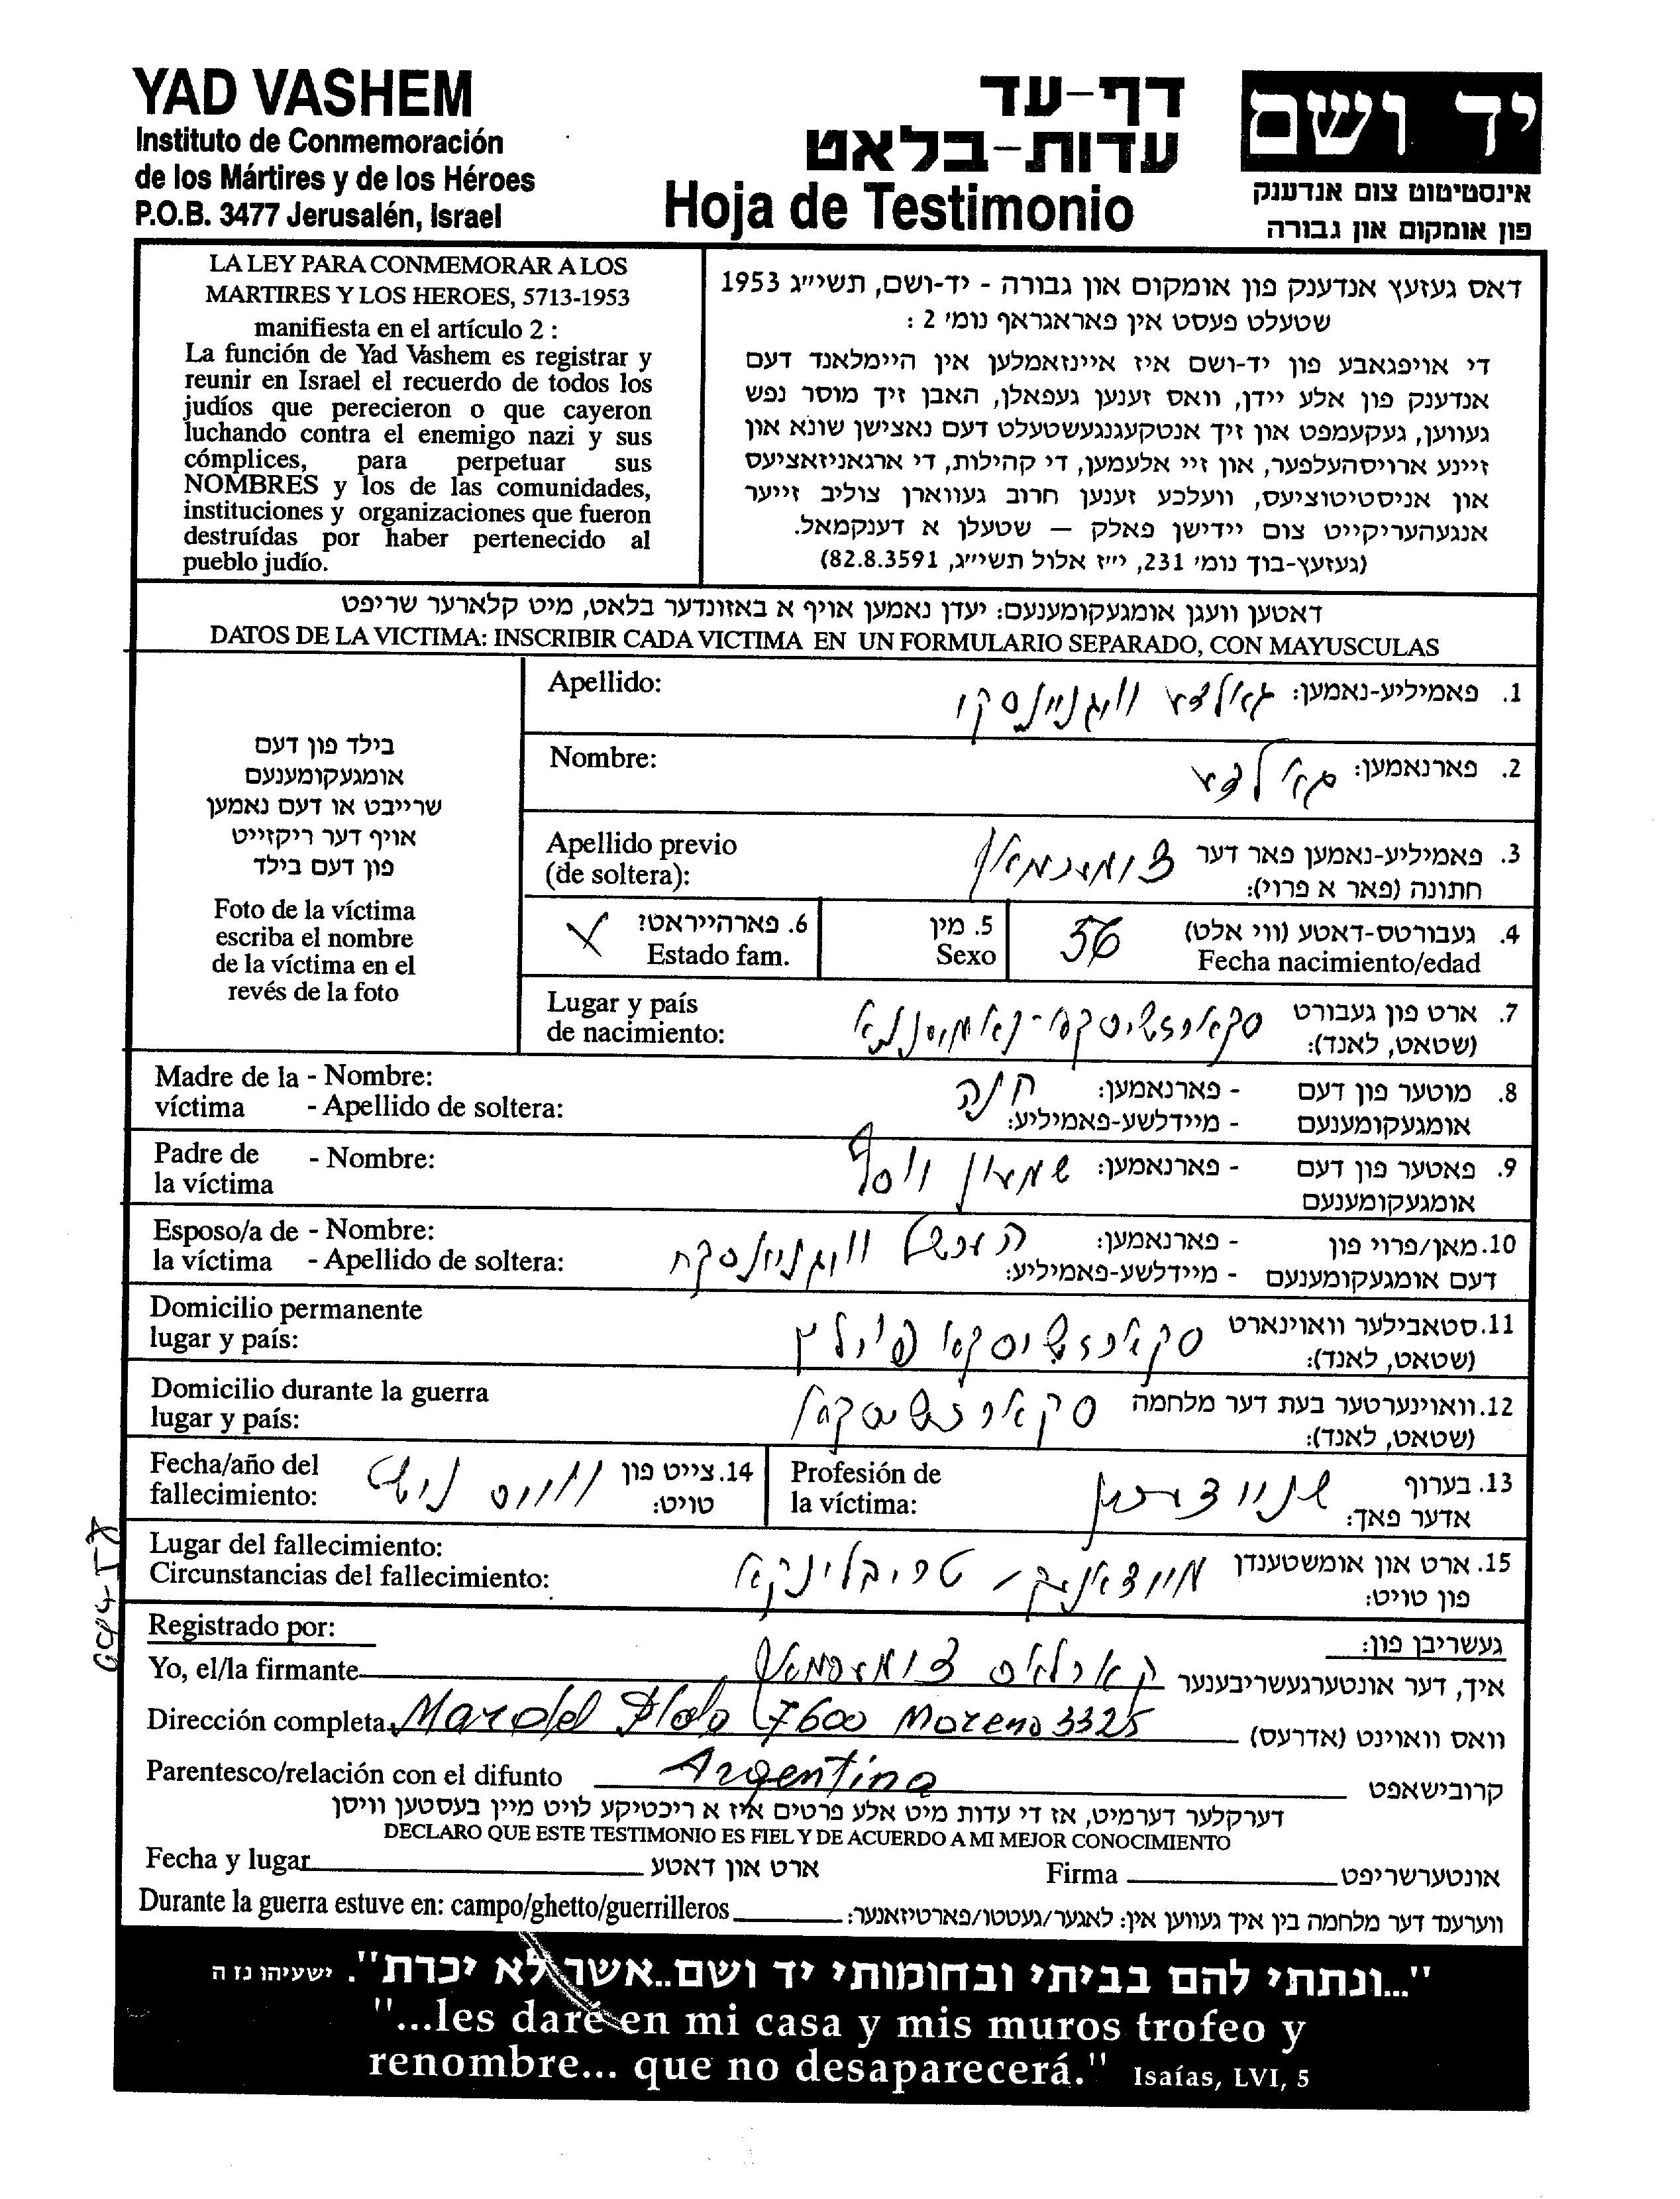 YAD VASHEM
Instituto de Conmemoración
de los Mártires y de los Héroes
P.O.B. 3477 Jerusalén, Israel
דף-עד
עדות-בלאט
Hoja de Testimonio
יד ושם
אינסטיטוט צום אנדענק
פון אומקום און גבורה
LA LEY PARA CONMEMORAR A LOS
MARTIRES Y LOS HEROES, 5713-1953
manifiesta en el artículo 2 :
La función de Yad Vashem es registrar y
reunir en Israel el recuerdo de todos los
judíos que perecieron o que cayeron
luchando contra el enemigo nazi y sus
cómplices, para perpetuar sus
NOMBRES y los de las comunidades,
instituciones y organizaciones que fueron
destruídas por haber pertenecido al
pueblo judío.
דאס געזעץ אנדענק פון אומקום און גבורה - יד-ושם, תשי״ג 1953
שטעלט פעסט אין פאראגראף נומ׳ 2 :
די אויפגאבע פון יד-ושם איז איינזאמלען אין היימלאנד דעם
אנדענק פון אלע יידן, וואס זענען געפאלן, האבן זיך מוסר נפש
געווען, געקעמפט און זיך אנטקעגנגעשטעלט דעם נאצישן שונא און
זיינע ארויסהעלפער, און זיי אלעמען, די קהילות, די ארגאניזאציעס
און אניסטיטוציעס, וועלכע זענען חרוב געווארן צוליב זייער
אנגעהעריקייט צום יידישן פאלק — שטעלן א דענקמאל.
(געזעץ-בוך נומ׳ 231, י״ז אלול תשי״ג, 82.8.3591)
דאטען וועגן אומגעקומענעם: יעדן נאמען אויף א באזונדער בלאט, מיט קלארער שריפט
DATOS DE LA VICTIMA: INSCRIBIR CADA VICTIMA EN UN FORMULARIO SEPARADO, CON MAYUSCULAS
בילד פון דעם
אומגעקומענעם
שרייבט או דעם נאמען
אויף דער ריקזייט
פון דעם בילד
Foto de la víctima
escriba el nombre
de la víctima en el
revés de la foto
Apellido: 1. פאמיליע-נאמען: גאלדע
Nombre: 2. פארנאמען: גאלדע
Apellido previo 3. פאמיליע-נאמען פאר דער
(de soltera): חתונה (פאר א פרוי): צומערמאן
4. געבורטס-דאטע (ווי אלט) 56 5. מין 6. פארהייראט? X
Fecha nacimiento/edad Sexo Estado fam.
Lugar y país 7. ארט פון געבורט
de nacimiento: (שטאט, לאנד):
Madre de la - Nombre: 8. מוטער פון דעם - פארנאמען: חנה
víctima - Apellido de soltera: אומגעקומענעם - מיידלשע-פאמיליע:
Padre de - Nombre: 9. פאטער פון דעם - פארנאמען: שמעון
la víctima אומגעקומענעם
Esposo/a de - Nombre: 10. מאן/פרוי פון - פארנאמען: הערשל
la víctima - Apellido de soltera: דעם אומגעקומענעם - מיידלשע-פאמיליע:
Domicilio permanente 11. סטאבילער וואוינארט
lugar y país: (שטאט, לאנד): סקארזשיסקא פוילן
Domicilio durante la guerra 12. וואוינערטער בעת דער מלחמה
lugar y país: (שטאט, לאנד): סקארזשיסקא
Fecha/año del 14. צייט פון
fallecimiento: טויט: ווייס ניט
Profesión de 13. בערוף
la víctima: אדער פאך: שניידערין
Lugar del fallecimiento: 15. ארט און אומשטענדן
Circunstancias del fallecimiento: פון טויט: מיידאנעק - טריבלינקא
Registrado por: געשריבן פון:
Yo, el/la firmante איך, דער אונטערגעשריבענער צומערמאן
Dirección completa Mar del Plata 7600 Moreno 3325 וואס וואוינט (אדרעס)
Parentesco/relación con el difunto Argentina קרובישאפט
דערקלער דערמיט, אז די עדות מיט אלע פרטים איז א ריכטיקע לויט מיין בעסטען וויסן
DECLARO QUE ESTE TESTIMONIO ES FIEL Y DE ACUERDO A MI MEJOR CONOCIMIENTO
Fecha y lugar ארט און דאטע Firma אונטערשריפט
Durante la guerra estuve en: campo/ghetto/guerrilleros ווערענד דער מלחמה בין איך געווען אין: לאגער/געטטו/פארטיזאנער:
"...ונתתי להם בביתי ובחומותי יד ושם..אשר לא יכרת". ישעיהו נז ה
"...les daré en mi casa y mis muros trofeo y
renombre... que no desaparecerá." Isaías, LVI, 5